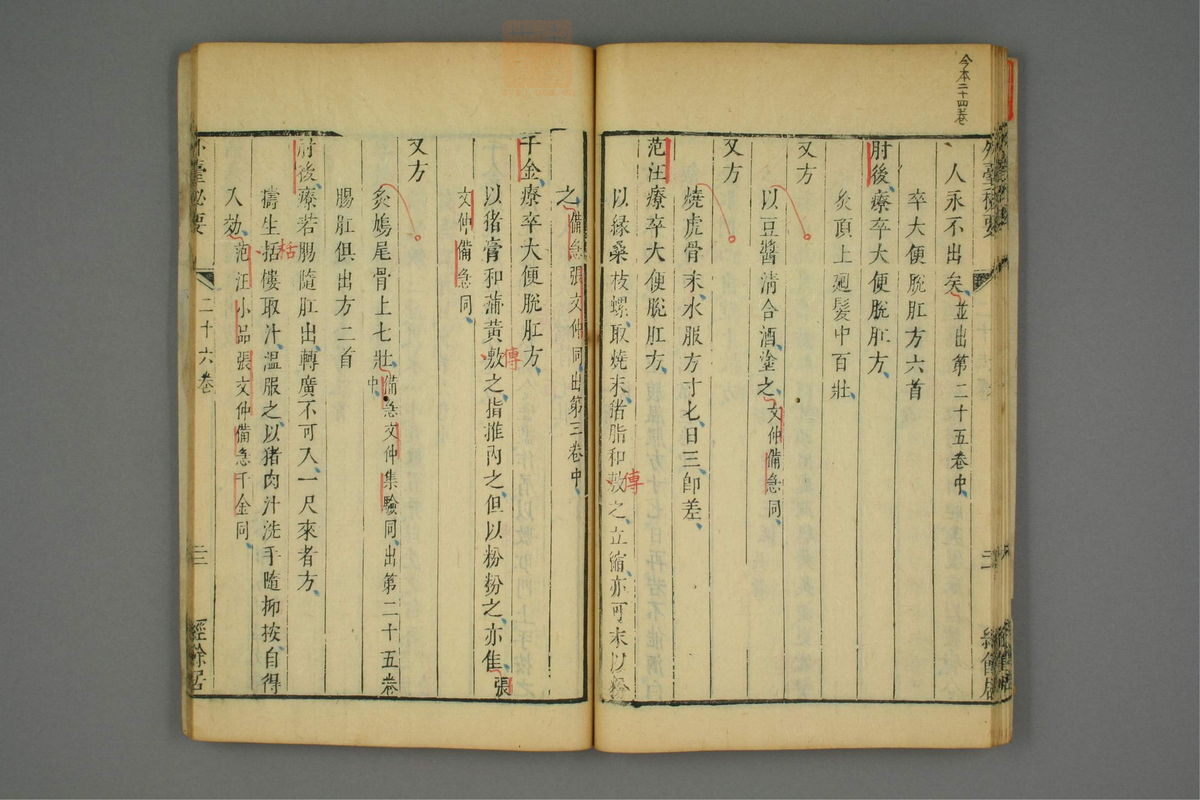 今本二十四卷
人永不出矣並出第二十五卷中
卒大便脫肛方六首
肘後療卒大便脫肛方
灸頂上廻髮中百壯
又方
以豆醬清合酒塗之文仲備急同
又方
燒虎骨末水服方寸匕日三卽差
范汪療卒大便脫肛方
以緣桑枝螺取燒末猪脂和敷之立縮亦可末以粉
傅
之備急張文仲同出第三卷中
千金療卒大便脫肛方
以猪膏和蒲黃敷之指推內之但以粉粉之亦佳張
傅
文仲備急同
又方
灸鳩尾骨上七壯備急文仲集驗同出第二十五卷
中
腸肛俱出方二首
肘後療若腸隨肛出轉廣不可入一尺來者方
擣生括樓取汁溫服之以猪肉汁洗手隨抑按自得
栝
入効范汪小品張文仲備急千金同
外臺秘要
二十六卷
三
經餘居